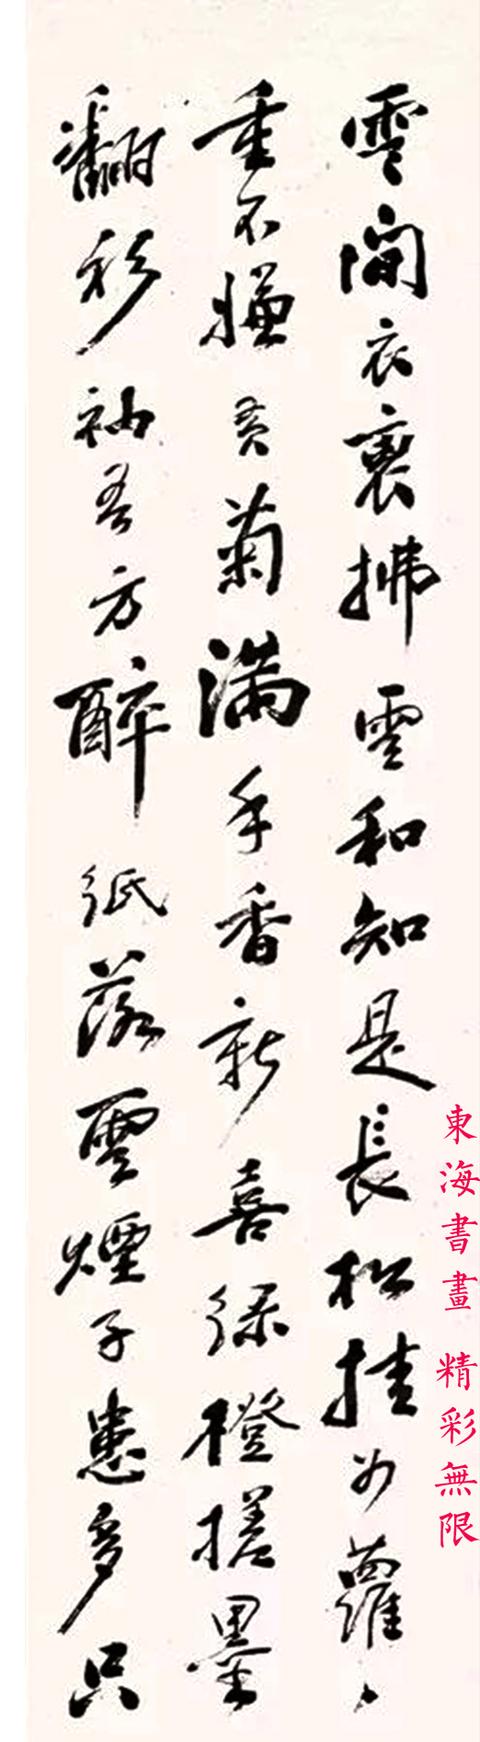 雲間衣裹拂雲和知是長松挂蘿
重不嫌黃菊滿手香新喜綠橙搓墨
翻衫袖吾方醉紙落雲煙子患多只
東海書畫 精彩無限